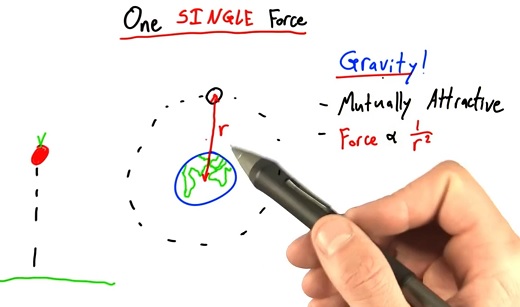 One SINGLE Force
Gravity!
- Mutually Attractive
- Force ∝ 1/r²
r